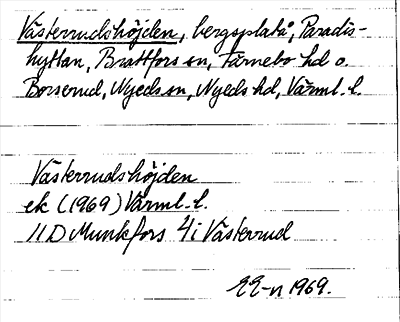 Västerrudshöjden, bergsplatå, Paradis-
hyttan, Brattfors sn, Färnebo hd o.
Borserud, Nyeds sn, Nyeds hd, Värml. l.
Västerrudshöjden
ek (1969) Värml. l.
11D Munkfors 4i Västerrud
EE-n 1969.